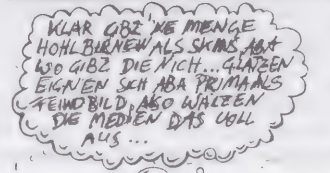 KLAR GIBZ 'NE MENGE
HOHLBIRNEN ALS SKINS, ABA
WO GIBZ DIE NICH... GLATZEN
EIGNEN SICH ABA PRIMA ALS
FEINDBILD, ALSO WALZEN
DIE MEDIEN DAS VOLL
AUS...